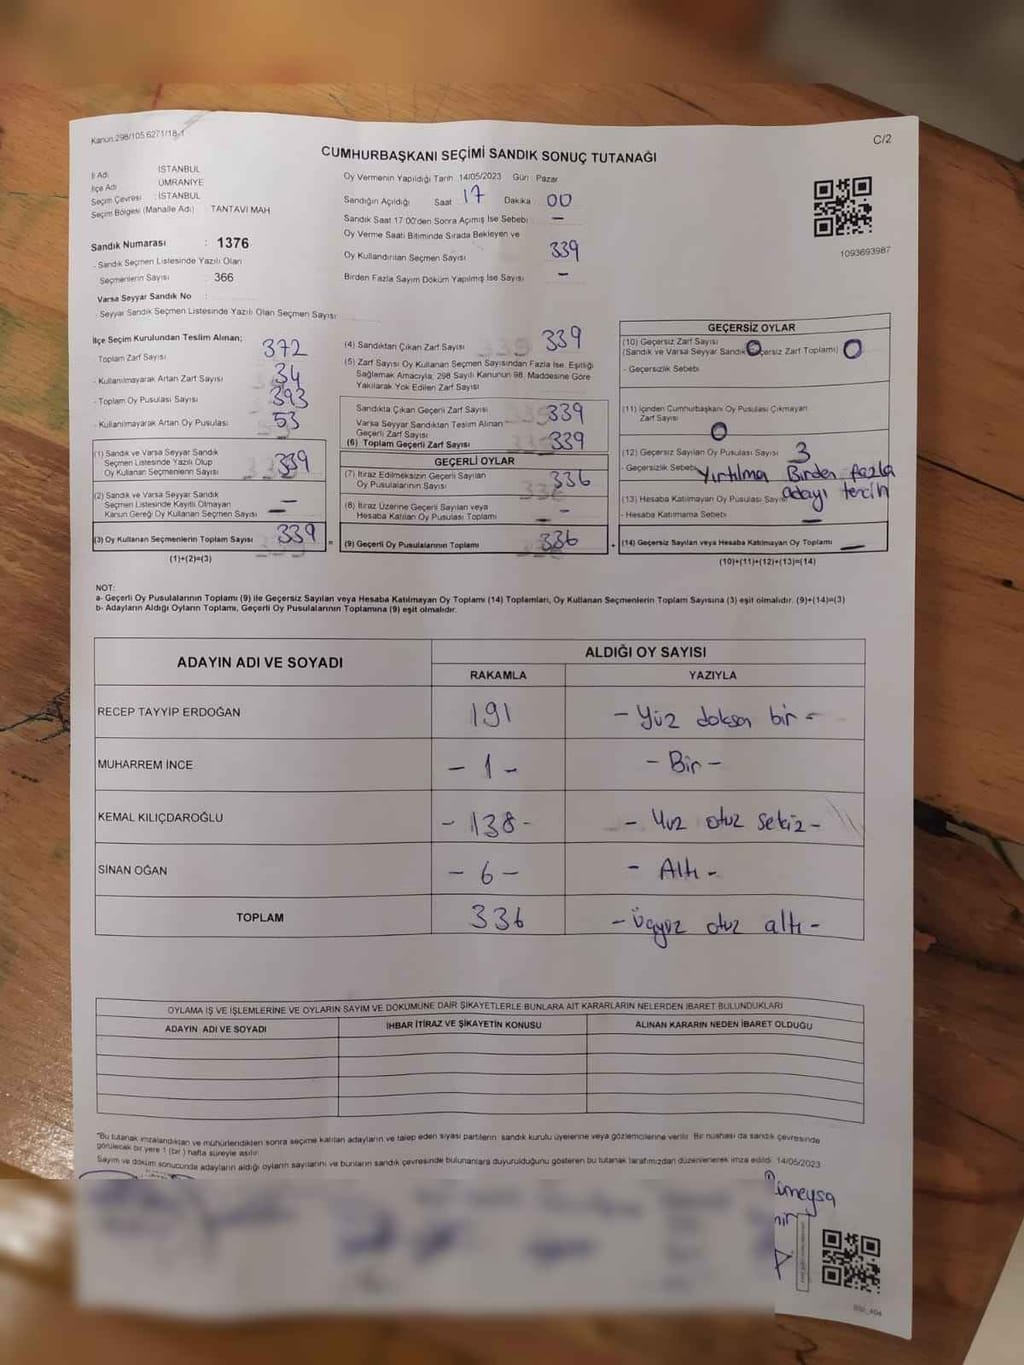 Kanun:298/105.6271/18-1
C/2
CUMHURBAŞKANI SEÇİMİ SANDIK SONUÇ TUTANAĞI
İl Adı : İSTANBUL
İlçe Adı : ÜMRANİYE
Seçim Çevresi : İSTANBUL
Seçim Bölgesi (Mahalle Adı) : TANTAVİ MAH
Sandık Numarası : 1376
- Sandık Seçmen Listesinde Yazılı Olan
Seçmenlerin Sayısı : 366
Varsa Seyyar Sandık No :
- Seyyar Sandık Seçmen Listesinde Yazılı Olan Seçmen Sayısı :
Oy Vermenin Yapıldığı Tarih :14/05/2023 Gün : Pazar
Sandığın Açıldığı Saat : 17 Dakika : 00
Sandık Saat 17:00'den Sonra Açılmış İse Sebebi : -
Oy Verme Saati Bitiminde Sırada Bekleyen ve
Oy Kullandırılan Seçmen Sayısı : 339
Birden Fazla Sayım Döküm Yapılmış İse Sayısı : -
1093693987
İlçe Seçim Kurulundan Teslim Alınan;
- Toplam Zarf Sayısı : 372
- Kullanılmayarak Artan Zarf Sayısı : 34
- Toplam Oy Pusulası Sayısı : 393
- Kullanılmayarak Artan Oy Pusulası : 53
(1) Sandık ve Varsa Seyyar Sandık
Seçmen Listesinde Yazılı Olup
Oy Kullanan Seçmenlerin Sayısı : 339
(2) Sandık ve Varsa Seyyar Sandık
Seçmen Listesinde Kayıtlı Olmayan
Kanun Gereği Oy Kullanan Seçmen Sayısı : -
(3) Oy Kullanan Seçmenlerin Toplam Sayısı : 339
(1)+(2)=(3)
(4) Sandıktan Çıkan Zarf Sayısı : 339
(5) Zarf Sayısı Oy Kullanan Seçmen Sayısından Fazla İse, Eşitliği
Sağlamak Amacıyla; 298 Sayılı Kanunun 98. Maddesine Göre
Yakılarak Yok Edilen Zarf Sayısı :
Sandıkta Çıkan Geçerli Zarf Sayısı : 339
Varsa Seyyar Sandıktan Teslim Alınan
Geçerli Zarf Sayısı :
(6) Toplam Geçerli Zarf Sayısı : 339
GEÇERLİ OYLAR
(7) İtiraz Edilmeksizin Geçerli Sayılan
Oy Pusulalarının Sayısı : 336
(8) İtiraz Üzerine Geçerli Sayılan veya
Hesaba Katılan Oy Pusulası Toplamı : -
= (9) Geçerli Oy Pusulalarının Toplamı : 336
GEÇERSİZ OYLAR
(10) Geçersiz Zarf Sayısı
(Sandık ve Varsa Seyyar Sandık Geçersiz Zarf Toplamı) : 0
- Geçersizlik Sebebi :
(11) İçinden Cumhurbaşkanı Oy Pusulası Çıkmayan
Zarf Sayısı : 0
(12) Geçersiz Sayılan Oy Pusulası Sayısı : 3
- Geçersizlik Sebebi : Yırtılma Birden fazla
adayı tercih
(13) Hesaba Katılmayan Oy Pusulası Sayısı :
- Hesaba Katılmama Sebebi : -
+ (14) Geçersiz Sayılan veya Hesaba Katılmayan Oy Toplamı : -
(10)+(11)+(12)+(13)=(14)
NOT:
a- Geçerli Oy Pusulalarının Toplamı (9) ile Geçersiz Sayılan veya Hesaba Katılmayan Oy Toplamı (14) Toplamları, Oy Kullanan Seçmenlerin Toplam Sayısına (3) eşit olmalıdır. (9)+(14)=(3)
b- Adayların Aldığı Oyların Toplamı, Geçerli Oy Pusulalarının Toplamına (9) eşit olmalıdır.
ADAYIN ADI VE SOYADI ALDIĞI OY SAYISI
RAKAMLA YAZIYLA
RECEP TAYYİP ERDOĞAN 191 - Yüz doksan bir -
MUHARREM İNCE - 1 - - Bir -
KEMAL KILIÇDAROĞLU - 138 - - Yüz otuz sekiz -
SİNAN OĞAN - 6 - - Altı -
TOPLAM 336 - Üçyüz otuz altı -
OYLAMA İŞ VE İŞLEMLERİNE VE OYLARIN SAYIM VE DÖKÜMÜNE DAİR ŞİKAYETLERLE BUNLARA AİT KARARLARIN NELERDEN İBARET BULUNDUKLARI
ADAYIN ADI VE SOYADI İHBAR İTİRAZ VE ŞİKAYETİN KONUSU ALINAN KARARIN NEDEN İBARET OLDUĞU
"Bu tutanak imzalandıktan ve mühürlendikten sonra seçime katılan adayların ve talep eden siyasi partilerin sandık kurulu üyelerine veya gözlemcilerine verilir. Bir nüshası da sandık çevresinde
görülecek bir yere 1 (bir) hafta süreyle asılır.
Sayım ve döküm sonucunda adayların aldığı oyların sayılarını ve bunların sandık çevresinde bulunanlara duyurulduğunu gösteren bu tutanak tarafımızdan düzenlenerek imza edildi. 14/05/2023
Rümeysa